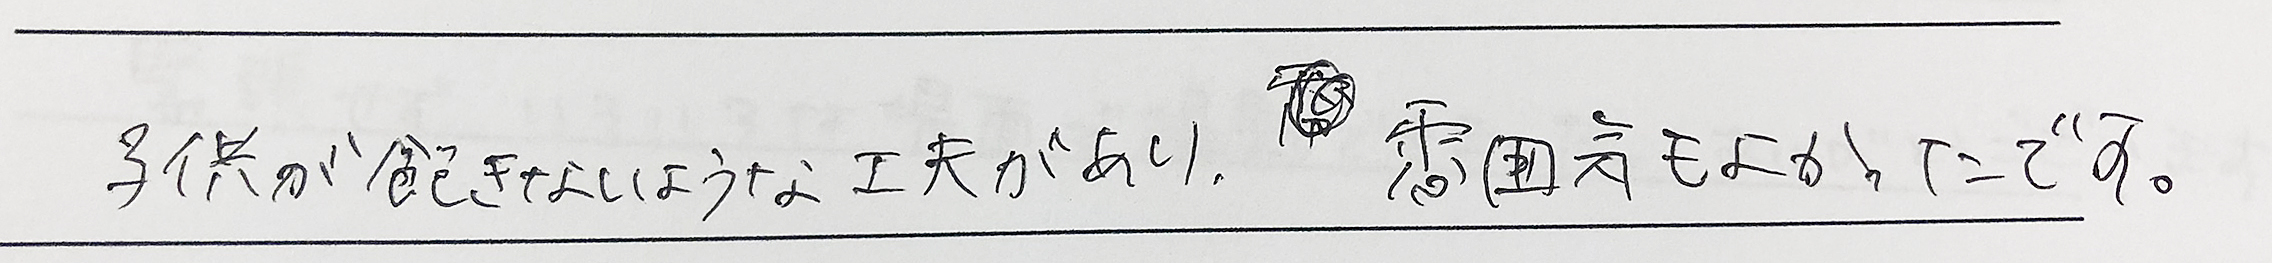 子供が飽きないような工夫があり、雰囲気もよかったです。